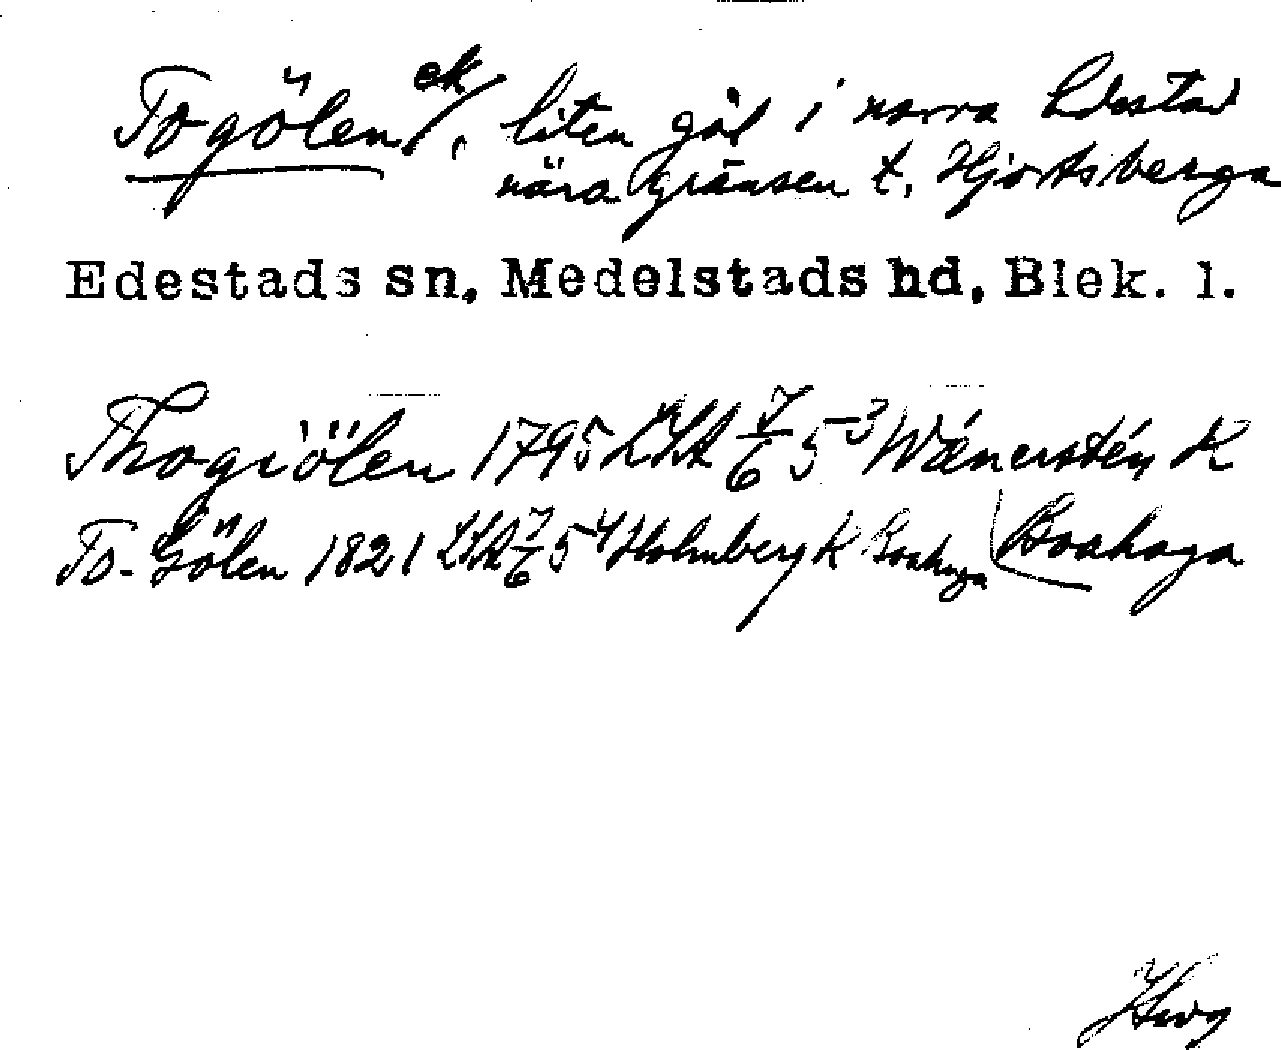 Togölen ek/, liten göl i norra Edestad
nära gränsen t. Hjortsberga
Edestads sn, Medelstads hd, Blek. l.
Thogiölen 1795 LSA 7/6 5³ Wånerstén K
To-Gölen 1821 LSA 7/6 5⁴ Holmberg K Boahaga Boahaga